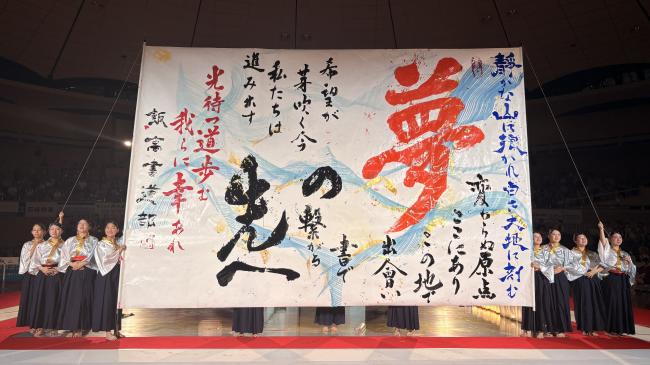 靜かな山に抱かれ白き大地に刻む
變わらぬ原点
ここにあり
この地で
出會い
夢
書で
繋がる
の
先へ
希望が
芽吹く今
私たちは
進み出す
光待つ道歩む
我らに幸あれ
書道部